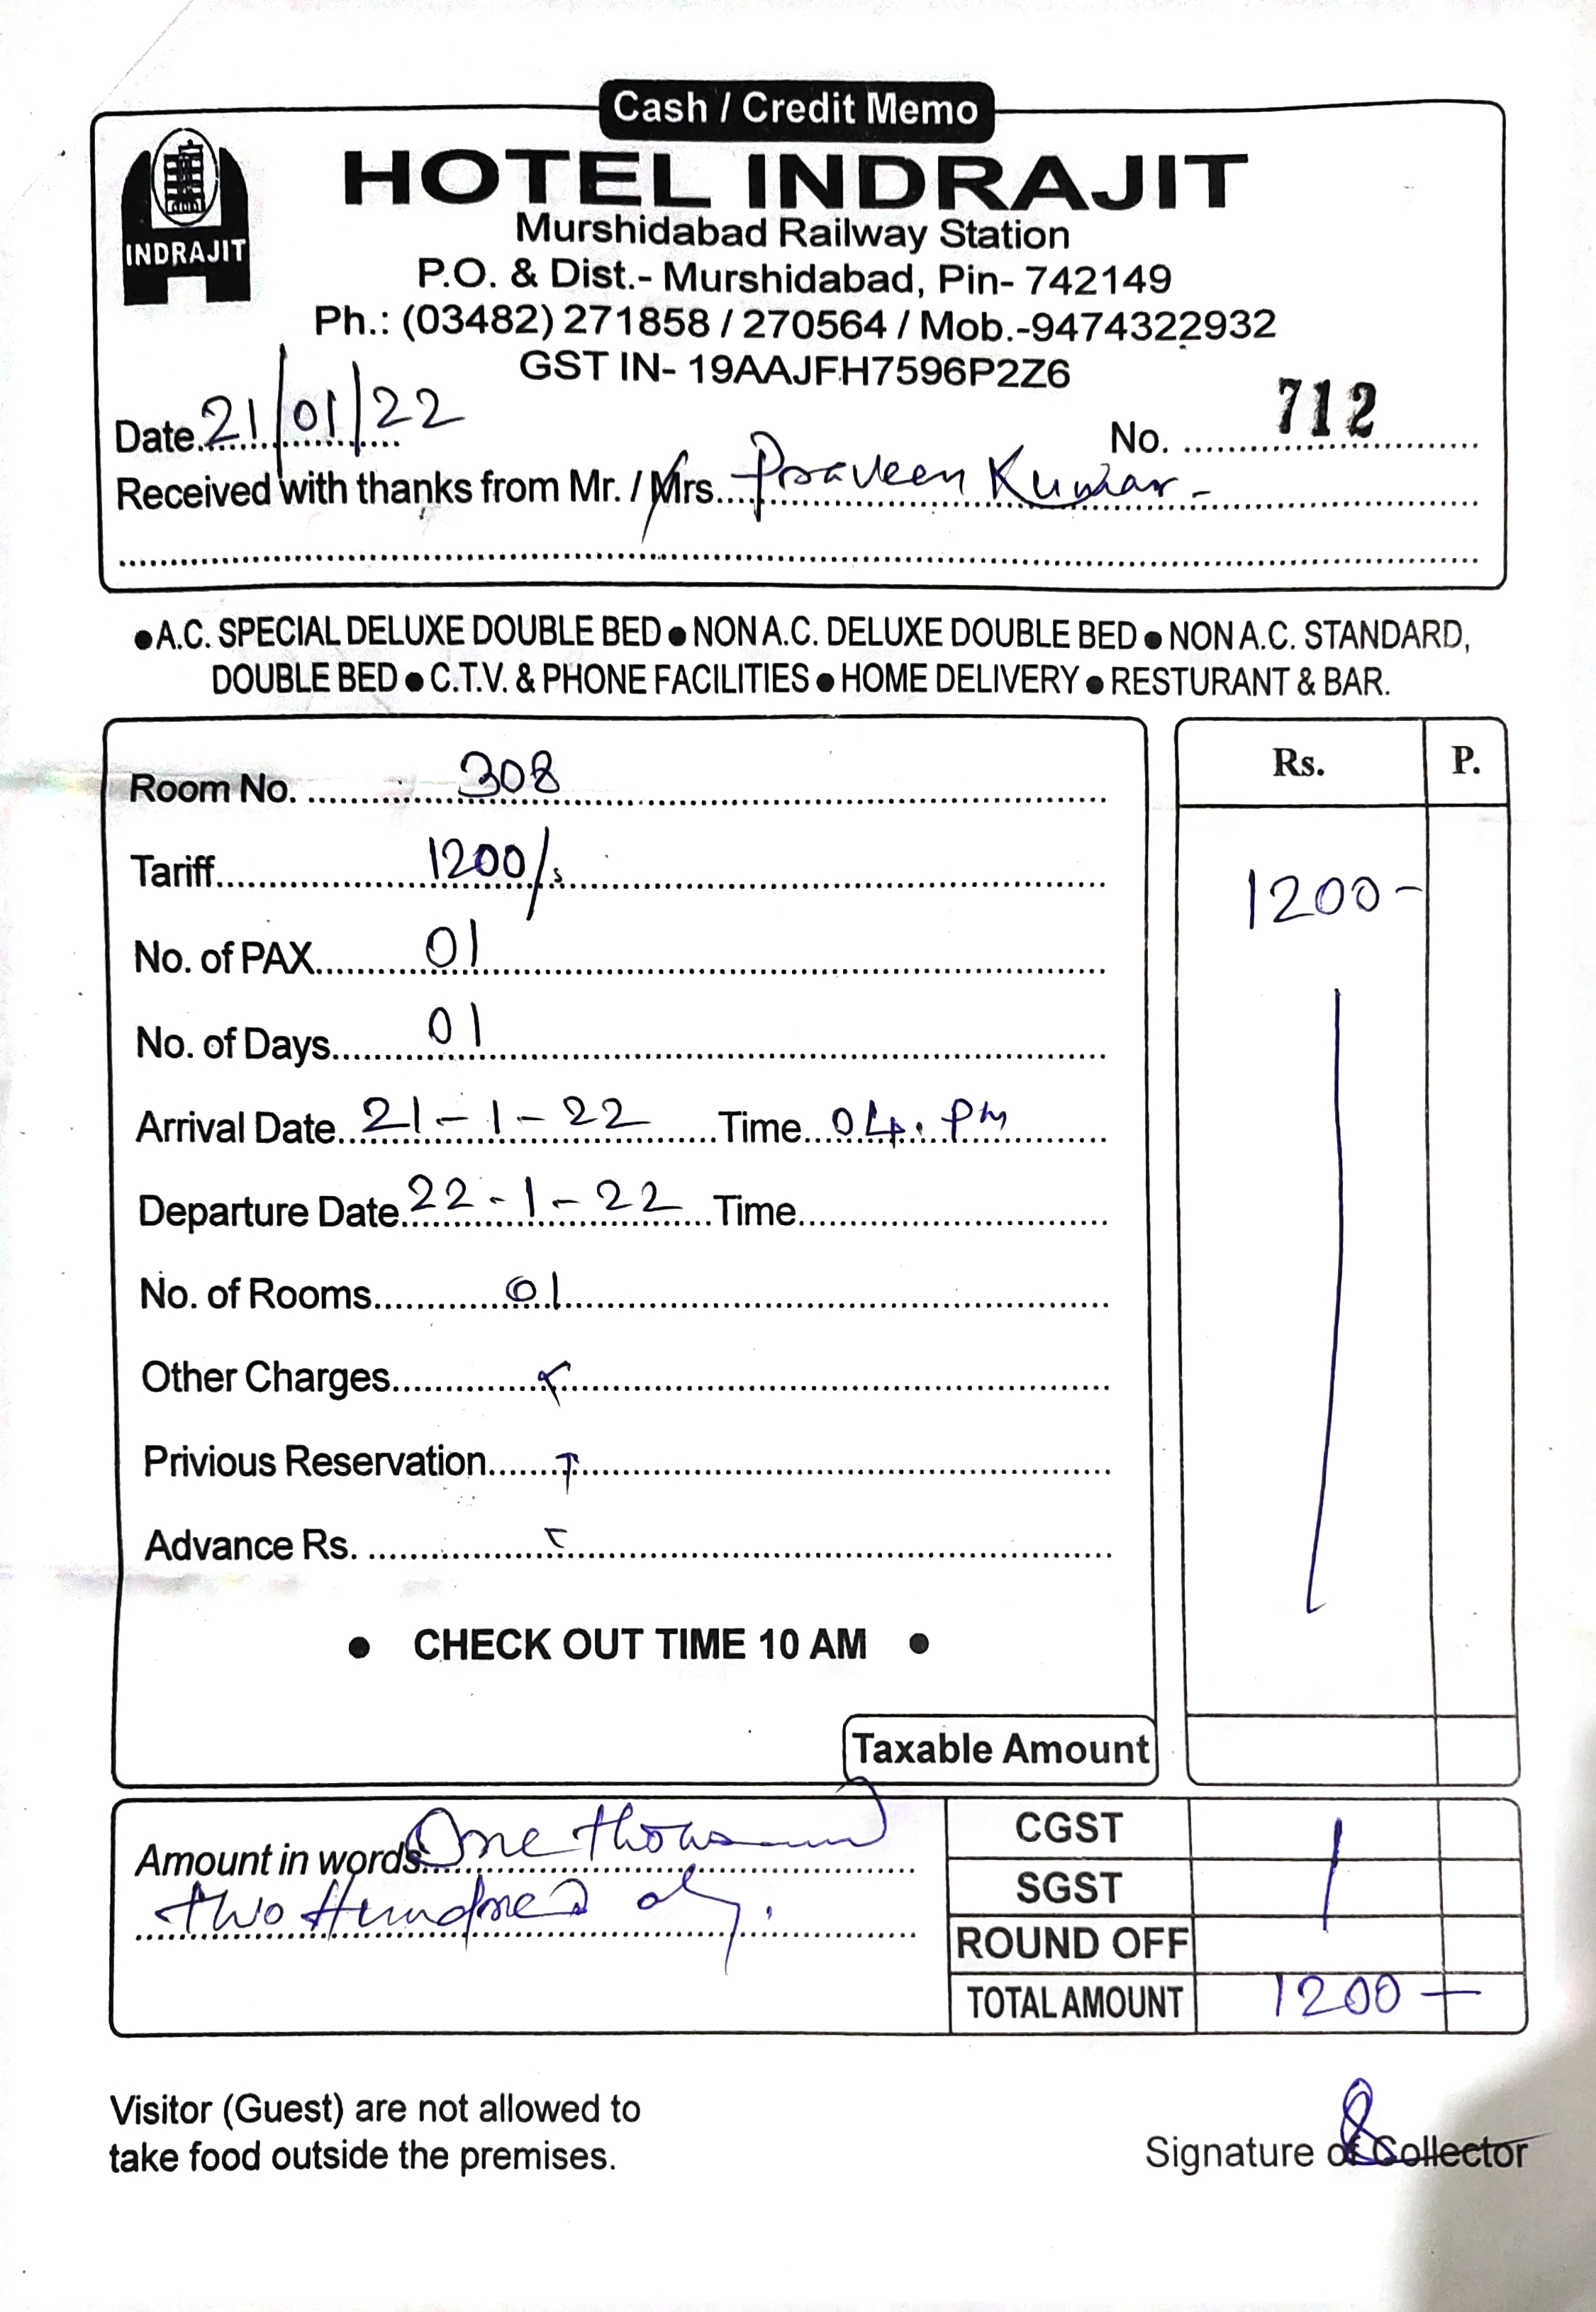 Cash / Credit Memo
INDRAJIT
HOTEL INDRAJIT
Murshidabad Railway Station
P.O. & Dist.- Murshidabad, Pin- 742149
Ph.: (03482) 271858 / 270564 / Mob.-9474322932
GST IN- 19AAJFH7596P2Z6
Date. 21/01/22 No. 712
Received with thanks from Mr. / Mrs. Praveen Kumar -
●A.C. SPECIAL DELUXE DOUBLE BED ● NON A.C. DELUXE DOUBLE BED ● NON A.C. STANDARD,
DOUBLE BED ● C.T.V. & PHONE FACILITIES ● HOME DELIVERY ● RESTURANT & BAR.
Rs. P.
Room No. 308
Tariff 1200/s 1200-
No. of PAX 01
No. of Days 01
Arrival Date 21-1-22 Time 04. PM
Departure Date 22-1-22 Time
No. of Rooms 01
Other Charges
Privious Reservation
Advance Rs.
● CHECK OUT TIME 10 AM ●
Taxable Amount
Amount in words One thousand
two Hundred only.
CGST
SGST
ROUND OFF
TOTAL AMOUNT 1200-
Visitor (Guest) are not allowed to
take food outside the premises.
Signature of Collector